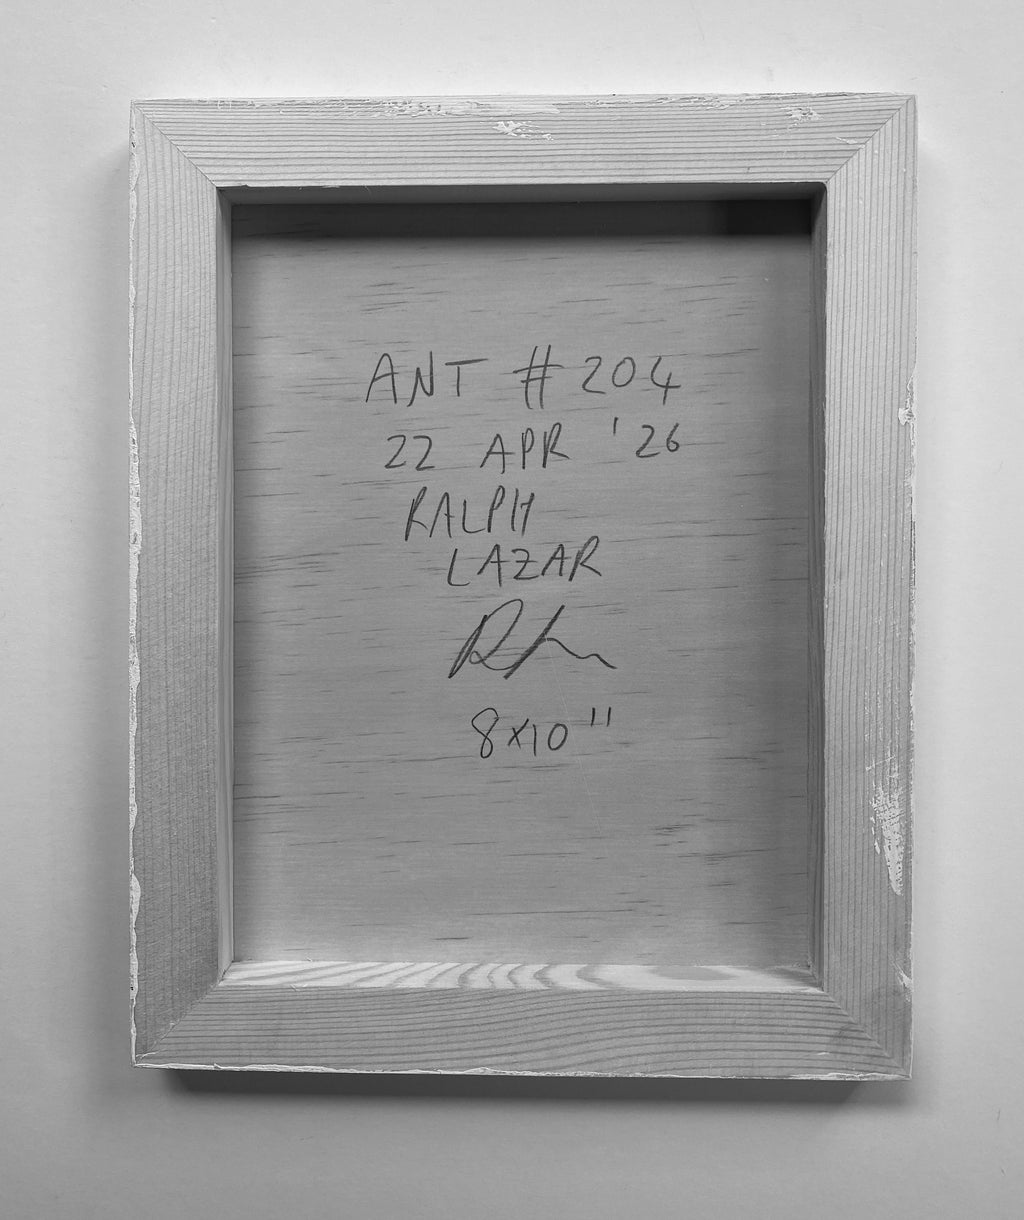 ANT #204
22 APR '26
RALPH
LAZAR
8x10"